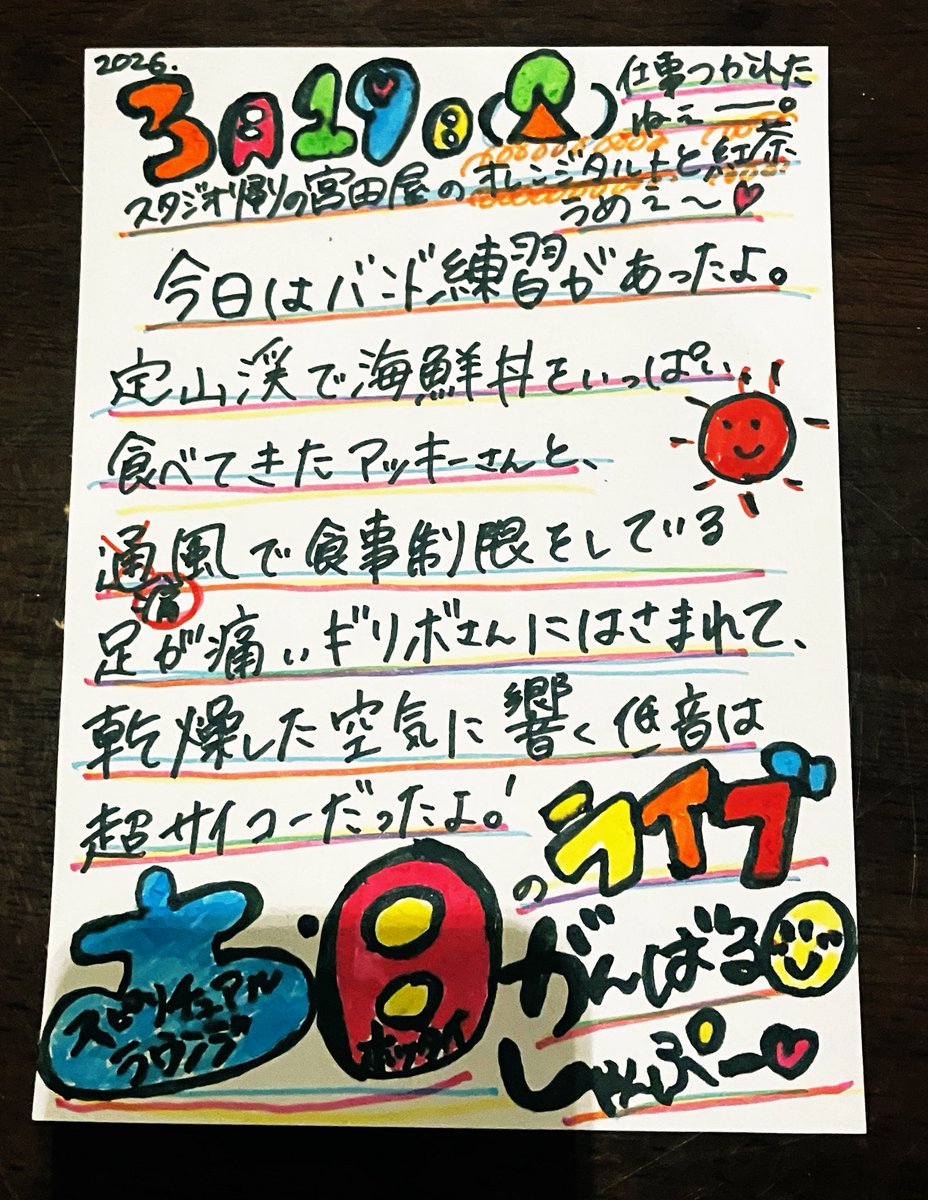 2026.
3月19日(木)
仕事つかれた
ねぇー。
スタジオ帰りの宮田屋のオレンジタルトと紅茶
うめぇ〜♥
今日はバンド練習があったよ。
定山渓で海鮮丼をいっぱい
食べてきたアッキーさんと、
通風で食事制限をしている
痛
足が痛いギリボさんにはさまれて、
乾燥した空気に響く低音は
超サイコーだったよ!
土・日のライブ
スピリチュアル
ラウンジ
ボッタイ
がんばる
しゃんぷー♥